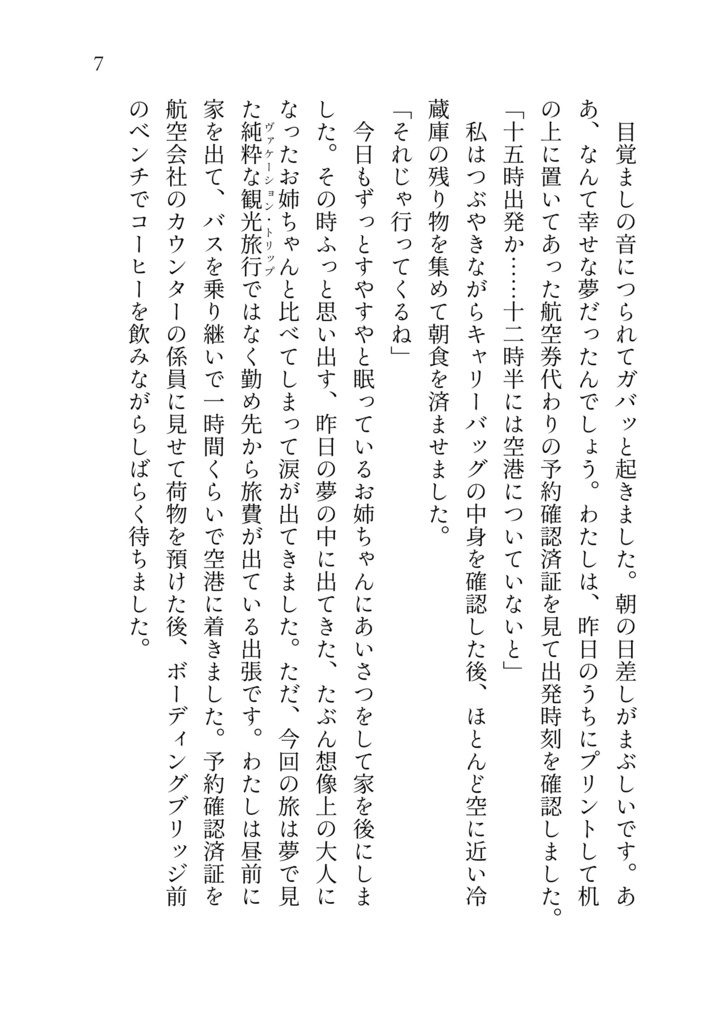 7
目覚ましの音につられてガバッと起きました。朝の日差しがまぶしいです。あ
あ、なんて幸せな夢だったんでしょう。わたしは、昨日のうちにプリントして机
の上に置いてあった航空券代わりの予約確認済証を見て出発時刻を確認しました。
「十五時出発か……十二時半には空港についていないと」
私はつぶやきながらキャリーバッグの中身を確認した後、ほとんど空に近い冷
蔵庫の残り物を集めて朝食を済ませました。
「それじゃ行ってくるね」
今日もずっとすやすやと眠っているお姉ちゃんにあいさつをして家を後にしま
した。その時ふっと思い出す、昨日の夢の中に出てきた、たぶん想像上の大人に
なったお姉ちゃんと比べてしまって涙が出てきました。ただ、今回の旅は夢で見
ヴァケーション・トリップ
た純粋な観光旅行ではなく勤め先から旅費が出ている出張です。わたしは昼前に
家を出て、バスを乗り継いで一時間くらいで空港に着きました。予約確認済証を
航空会社のカウンターの係員に見せて荷物を預けた後、ボーディングブリッジ前
のベンチでコーヒーを飲みながらしばらく待ちました。